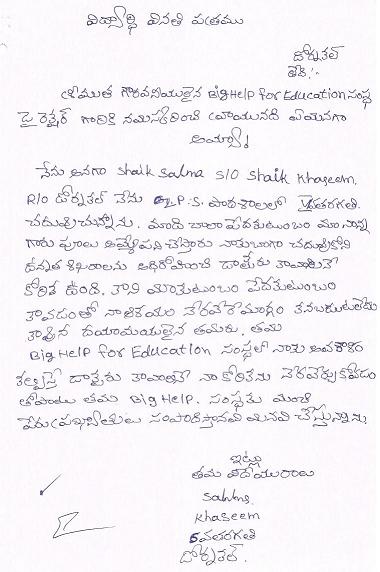 విద్యార్థి వినతి పత్రము
దోర్నకల్
తేది:
శ్రీయుత గౌరవనీయులైన BigHelp for Education సంస్థ
డైరెక్టర్ గారికి నమస్కరించి వ్రాయునది ఏమనగా
అయ్యా!
నేను అనగా Shaik Salma S/O Shaik Khaseem.
R/O దోర్నకల్ నేను P.S. పాఠశాలలో 5వతరగతి
చదువుచున్నాను. మాది చాలా పేదకుటుంబం మా నాన్న
గారు పూలు అమ్మే పని చేస్తారు నాకు బాగా చదువుకొని
ఉన్నత శిఖరాలను అధిరోహించి డాక్టరు కావాలనే
కోరిక ఉంది. కాని మాకుటుంబం పేదకుటుంబం
కావడంతో నా ఆశయం నెరవేరే మార్గం కనబడుటలేదు
కావున దయామయులైన తమరు. తమ
BigHelp for Education సంస్థలో నాకు అవకాశం
కల్పిస్తే డాక్టరు కావాలనే నా కోరికను నెరవేర్చుకోవడం
తోపాటు తమ BigHelp. సంస్థకు మంచి
పేరు ప్రఖ్యాతులు సంపాదిస్తానని మనవి చేస్తున్నాను.
ఇట్లు
తమ విధేయురాలు
Salma.
Khaseem
5వతరగతి
దోర్నకల్.